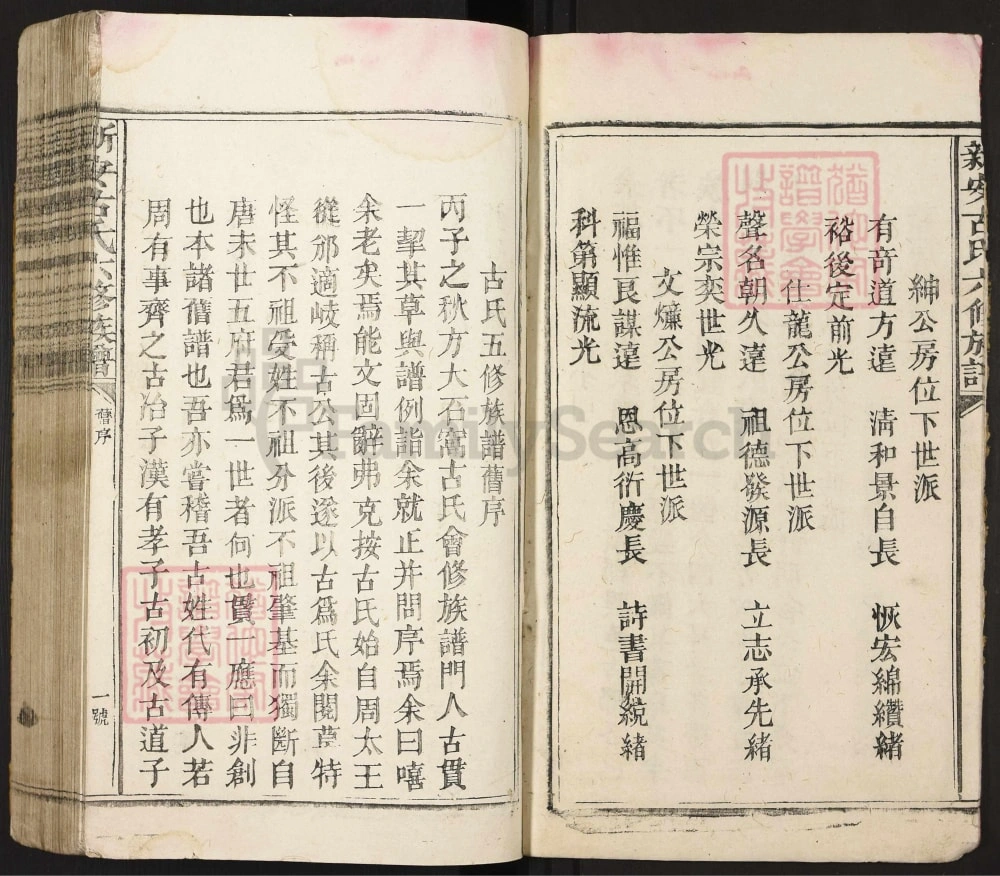 新安古氏六修族譜
紳公房位下世派
有竒道方遠　淸和景自長　恢宏綿纘緒
裕後定前光
仕龍公房位下世派
聲名朝久遠　祖德發源長　立志承先緒
榮宗奕世光
文爌公房位下世派
福惟艮謀遠　恩高衍慶長　詩書開統緒
科第顯流光
古氏五修族譜舊序
丙子之秋方大石窩古氏會修族譜門人古貫
一挈其草與譜例詣余就止并問序焉余曰嘻
余老矣焉能文固辭弗克按古氏始自周太王
從邠適岐稱古公其後遂以古爲氏余閱草特
怪其不祖受姓不祖分派不祖肇基而獨斷自
唐末世五府君爲一世者何也貫一應曰非創
也本諸舊譜也吾亦嘗稽吾古姓代有傳人若
周有事齊之古冶子漢有孝子古初及古道子
新安古氏六修族譜
舊序
一號
FamilySearch